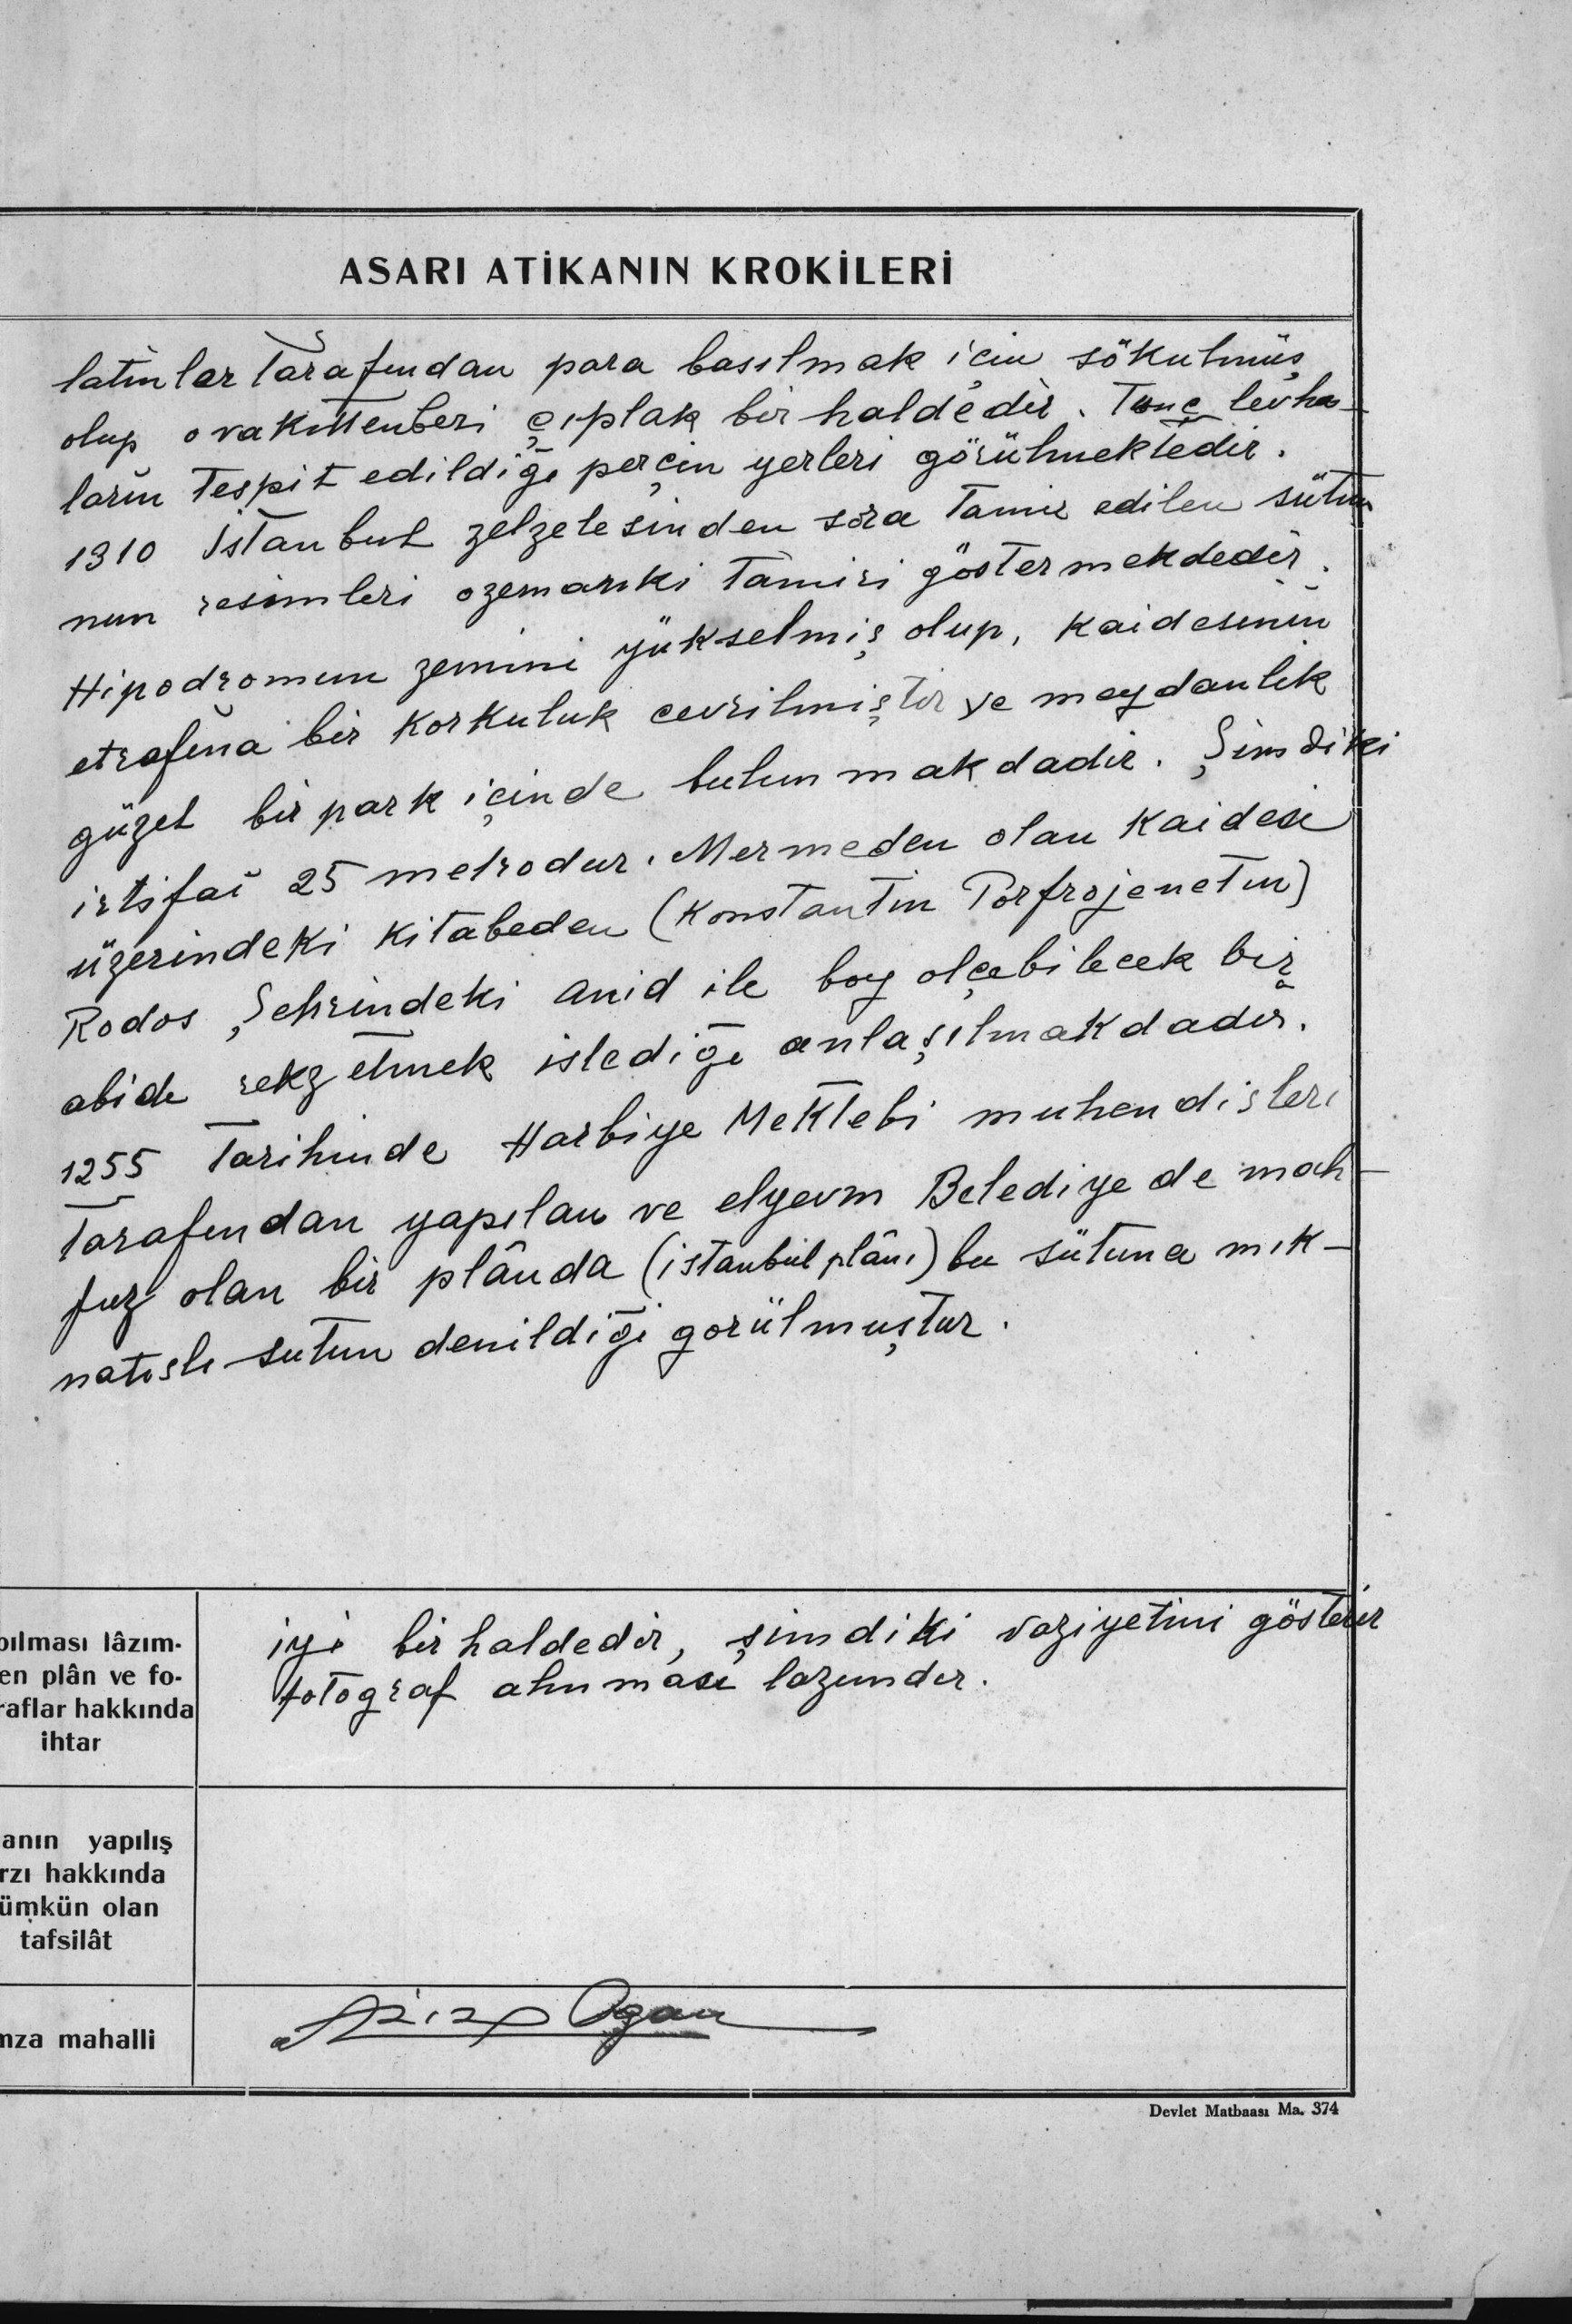 ASARI ATİKANIN KROKİLERİ
latinler tarafından para basılmak için sökülmüş
olup ovakittenberi çıplak bir haldedir. Tunç levha-
ların tespit edildiği perçin yerleri görülmektedir.
1310 İstanbul zelzelesinden sora tamir edilen sütu
nun resimleri ozemanki tamiri göstermekdedir.
Hipodromun zemini yükselmiş olup, kaidesinin
etrafına bir korkuluk cevrilmiştir ve meydanlık
güzel bir park içinde bulunmakdadır. Şimdiki
irtifaı 25 metrodur. Mermeden olan kaidesi
üzerindeki kitabeden (Konstantin Porfrojenetin)
Rodos Şehrindeki anid ile boy olçebilecek bir
abide rekzetmek istediği anlaşılmakdadır.
1255 Tarihinde Harbiye Mektebi muhendisleri
Tarafından yapılan ve elyevm Belediyede mah-
fuz olan bir plânda (istanbul plânı) bu sütuna mık-
natıslı sutun denildiği gorülmuştur.
pılması lâzım-
en plân ve fo-
raflar hakkında
ihtar
iyi bir haldedir, şimdiki vaziyetini gösterir
fotograf alınması lazımdır.
anın yapılış
rzı hakkında
ümkün olan
tafsilât
mza mahalli
Aziz Ogan
Devlet Matbaası Ma. 374